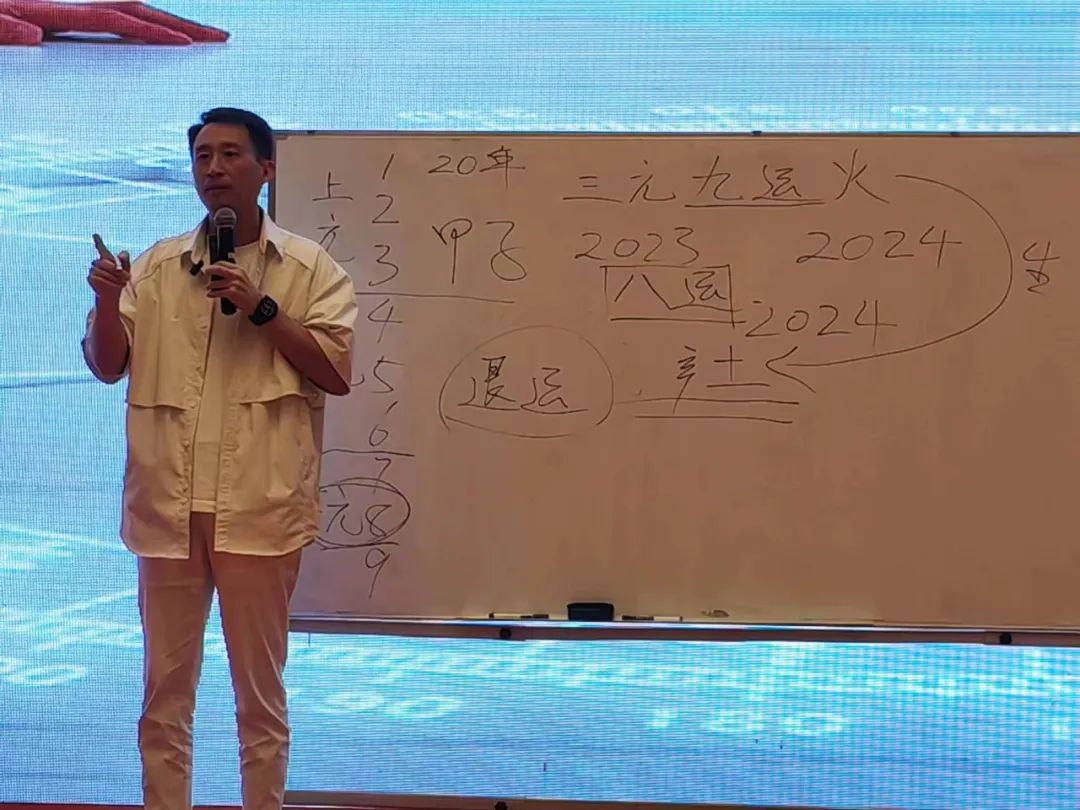 1 20年
上 2
元 3 甲子
4
5
6
7
元 8
9
三元九运火
2023 2024 生
八运 2024
退运 辛土